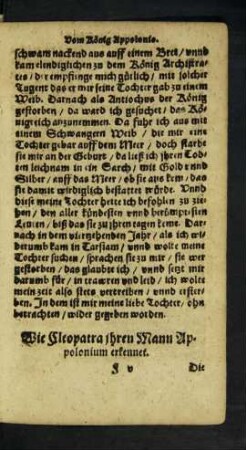 Vom König Appolonio.
schwam nackend aus auff einem Bret/ vnnd
kam elendiglichen zu dem König Archistra-
tes/ der empfinge mich gütlich/ mit solcher
Tugent das er mir seine Tochter gab zu einem
Weib. Darnach als Antiochus der König
gestorben/ da ward ich gesuchet/ das Kö-
nigreich anzunemmen. Da fuhr ich aus mit
einem Schwangern Weib/ die mir eine
Tochter gebar auff dem Meer/ doch starbe
sie mir an der Geburt/ da ließ ich jhren Tod-
ten leichnam in ein Sarch/ mit Gold vnnd
Silber/ auff das Meer/ ob sie aus kem/ das
sie damit wirdiglich bestattet würde. Vnnd
diese meine Tochter hette ich befohlen zu zie-
hen/ den aller kündesten vnnd berümpsten
Leuten/ biß das sie zu jhren tagen keme. Dar-
nach in dem viertzehenden Jahr/ als ich wi-
derumb kam in Tarsiam/ vnnd wolte meine
Tochter suchen/ sprachen sie zu mir/ sie wer
gestorben/ das glaubte ich/ vnnd setzt mir
darumb für/ in trawren vnd leid/ ich wolte
mein zeit also stets vertreiben/ vnnd
ben. In dem ist mir meine liebe Tochter/ ohn
betrachten/ wider gegeben worden.
Wie Cleopatra jhren Mann Ap-
polonium erkennet.
F v Die